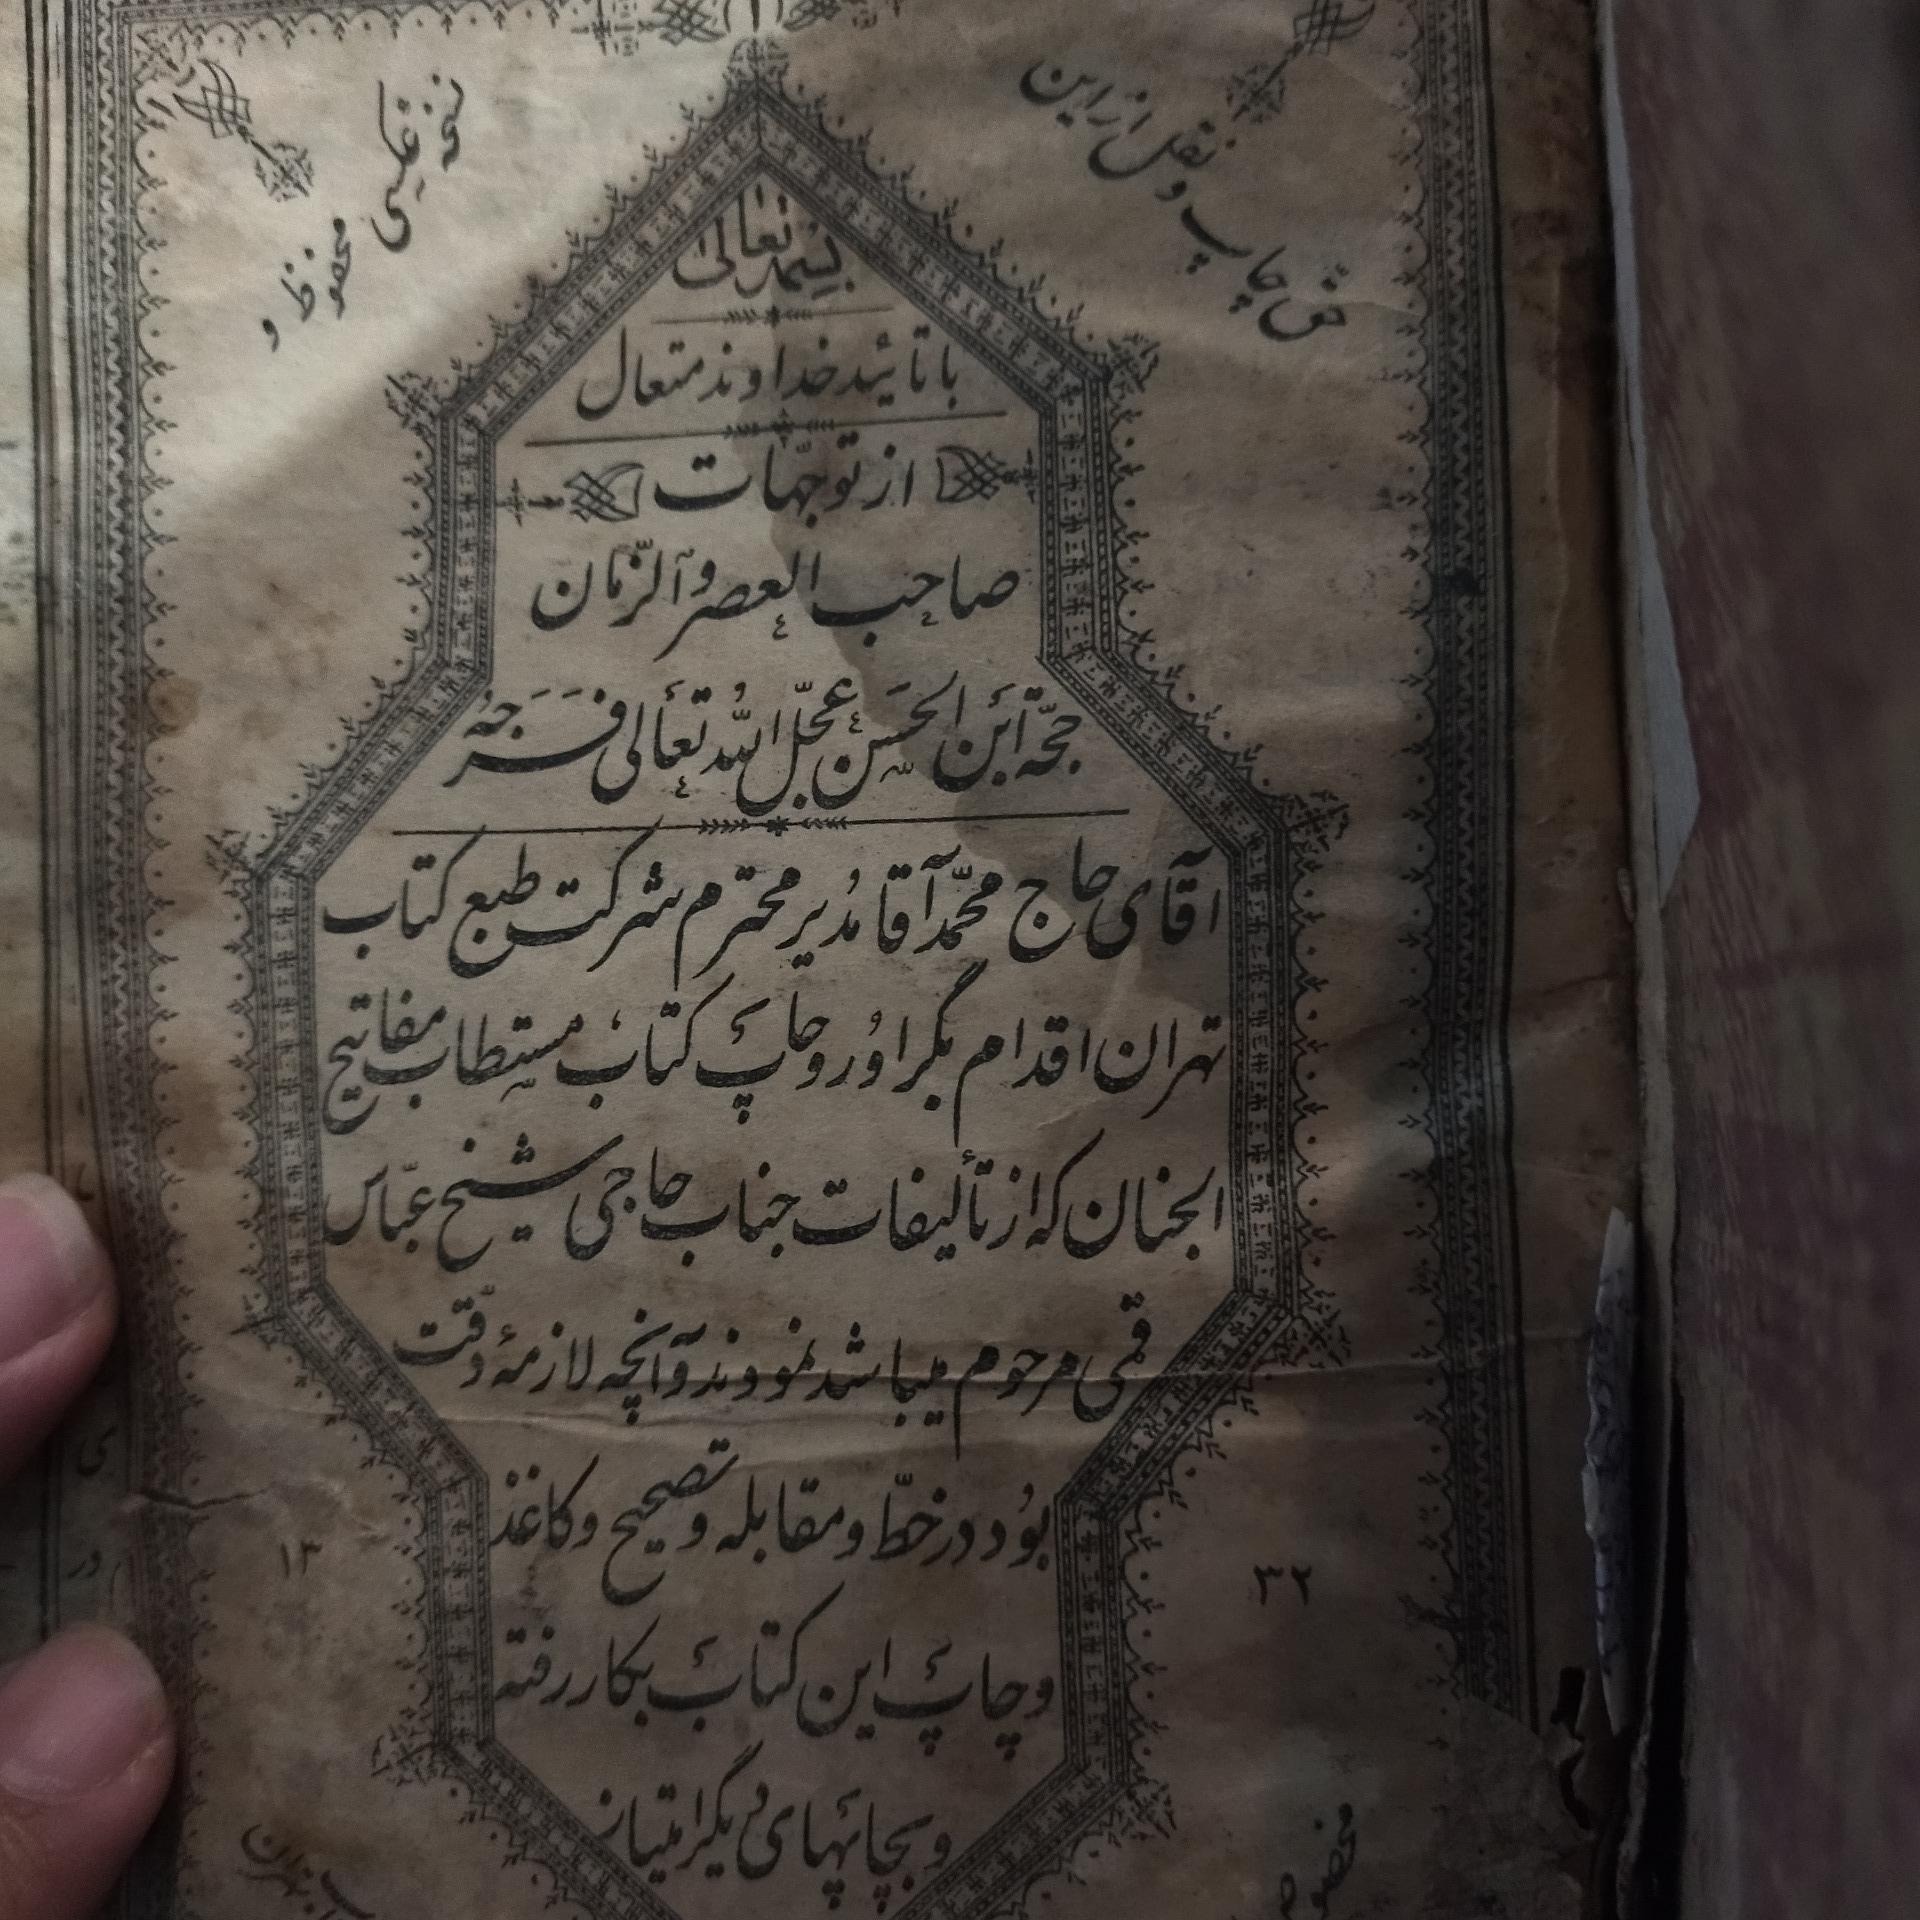 حق چاپ و نقل از این
نسخه عکسی
محفوظ و
بسمه تعالی
با تائید خداوند متعال
از توجّهات
صاحب العصر و الزّمان
حجّة ابن الحسن عجّل اللّه تعالی فرجه
آقای حاج محمّد آقا مدیر محترم شرکت طبع کتاب
تهران اقدام بگراور و چاپ کتاب مستطاب مفاتیح
الجنان که از تألیفات جناب حاجی شیخ عبّاس
قمی مرحوم میباشد نمودند و آنچه لازمهٔ دقّت
بود در خطّ و مقابله و تصحیح و کاغذ
و چاپ این کتاب بکار رفته
و بچاپهای دیگر امتیاز
۱۳
۳۲